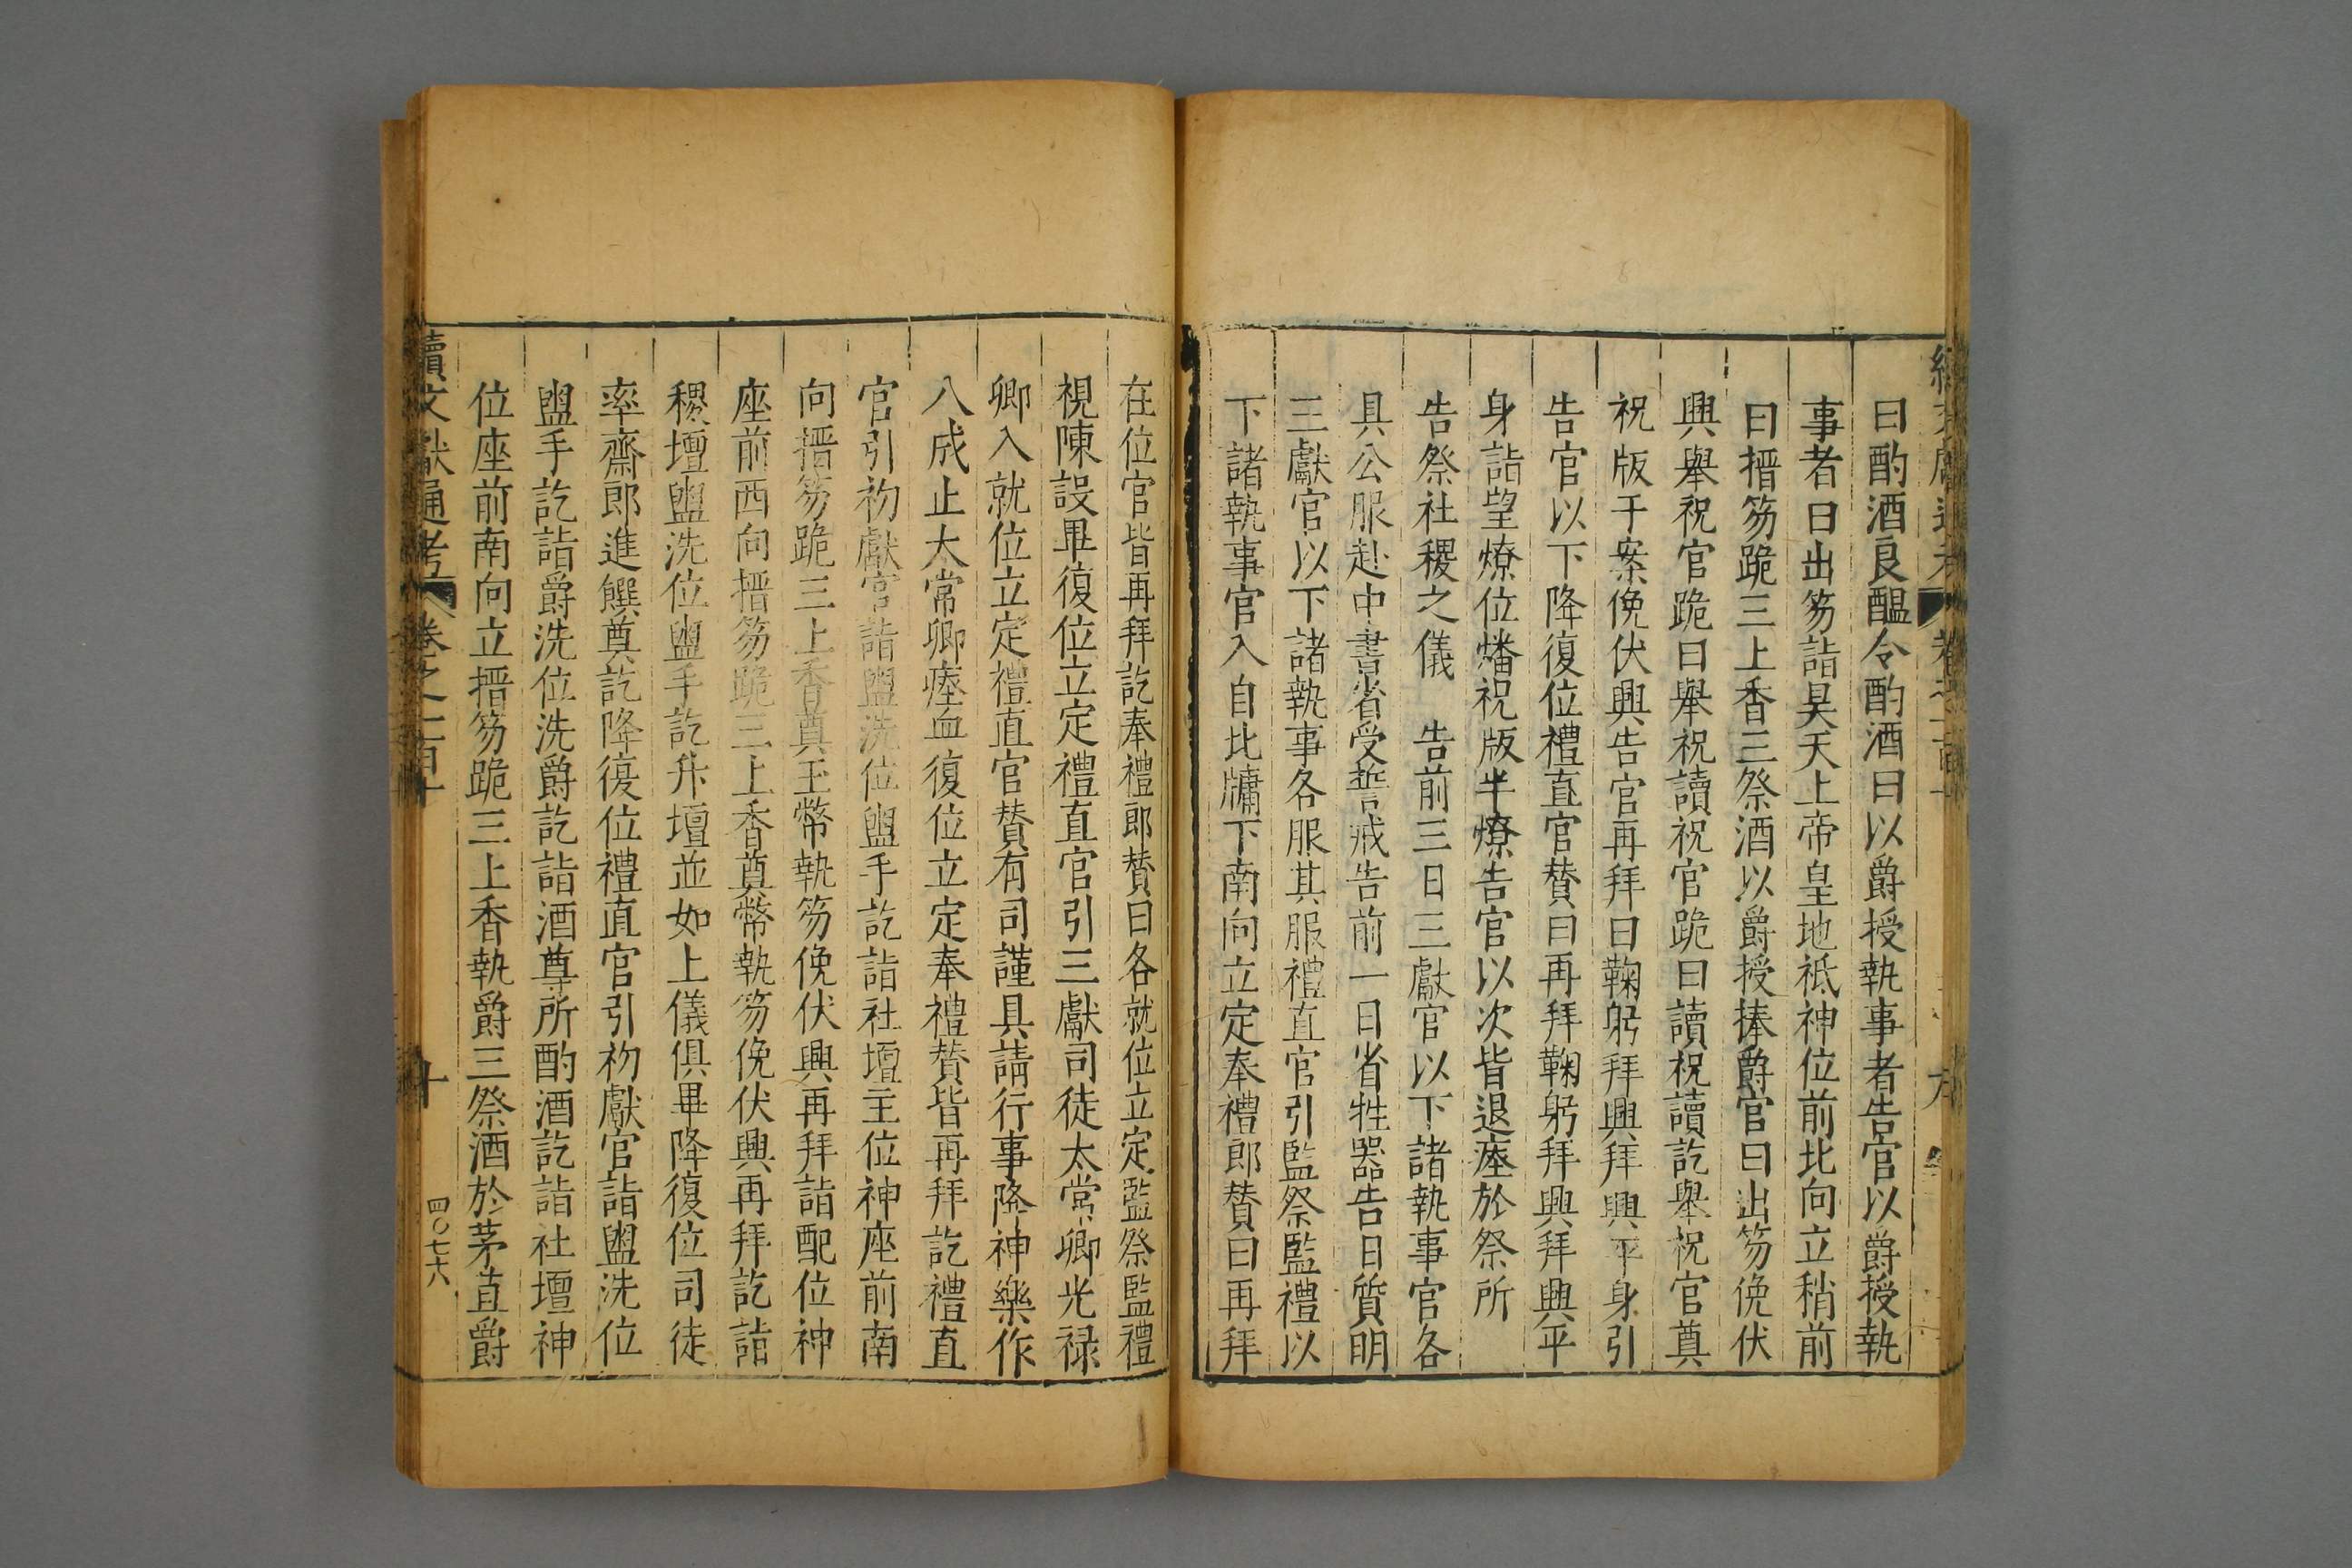 曰酌酒良醖令酌酒曰以爵授執事者告官以爵授執
事者曰出笏詣昊天上帝皇地祇神位前北向立稍前
曰搢笏跪三上香三祭酒以爵授捧爵官曰出笏俛伏
興舉祝官跪曰舉祝讀祝官跪曰讀祝讀訖舉祝官奠
祝版于案俛伏興告官再拜曰鞠躬拜興拜興平身引
告官以下降復位禮直官贊曰再拜鞠躬拜興拜興平
身詣望燎位燔祝版半燎告官以次皆退瘞於祭所
告祭社稷之儀　告前三日三獻官以下諸執事官各
具公服赴中書省受誓戒告前一日省牲器告日質明
三獻官以下諸執事各服其服禮直官引監祭監禮以
下諸執事官入自北牗下南向立定奉禮郎贊曰再拜
在位官皆再拜訖奉禮郎贊曰各就位立定監祭監禮
視陳設畢復位立定禮直官引三獻司徒太常卿光禄
卿入就位立定禮直官贊有司謹具請行事降神樂作
八成止太常卿瘞血復位立定奉禮贊皆再拜訖禮直
官引初獻官詣盥洗位盥手訖詣社壇正位神座前南
向搢笏跪三上香奠玉幣執笏俛伏興再拜詣配位神
座前西向搢笏跪三上香奠幣執笏俛伏興再拜訖詣
稷壇盥洗位盥手訖升壇並如上儀俱畢降復位司徒
率齋郎進饌奠訖降復位禮直官引初獻官詣盥洗位
盥手訖詣爵洗位洗爵訖詣酒尊所酌酒訖詣社壇神
位座前南向立搢笏跪三上香執爵三祭酒於茅苴爵
續文獻通考 卷之一百十
十
四〇七六